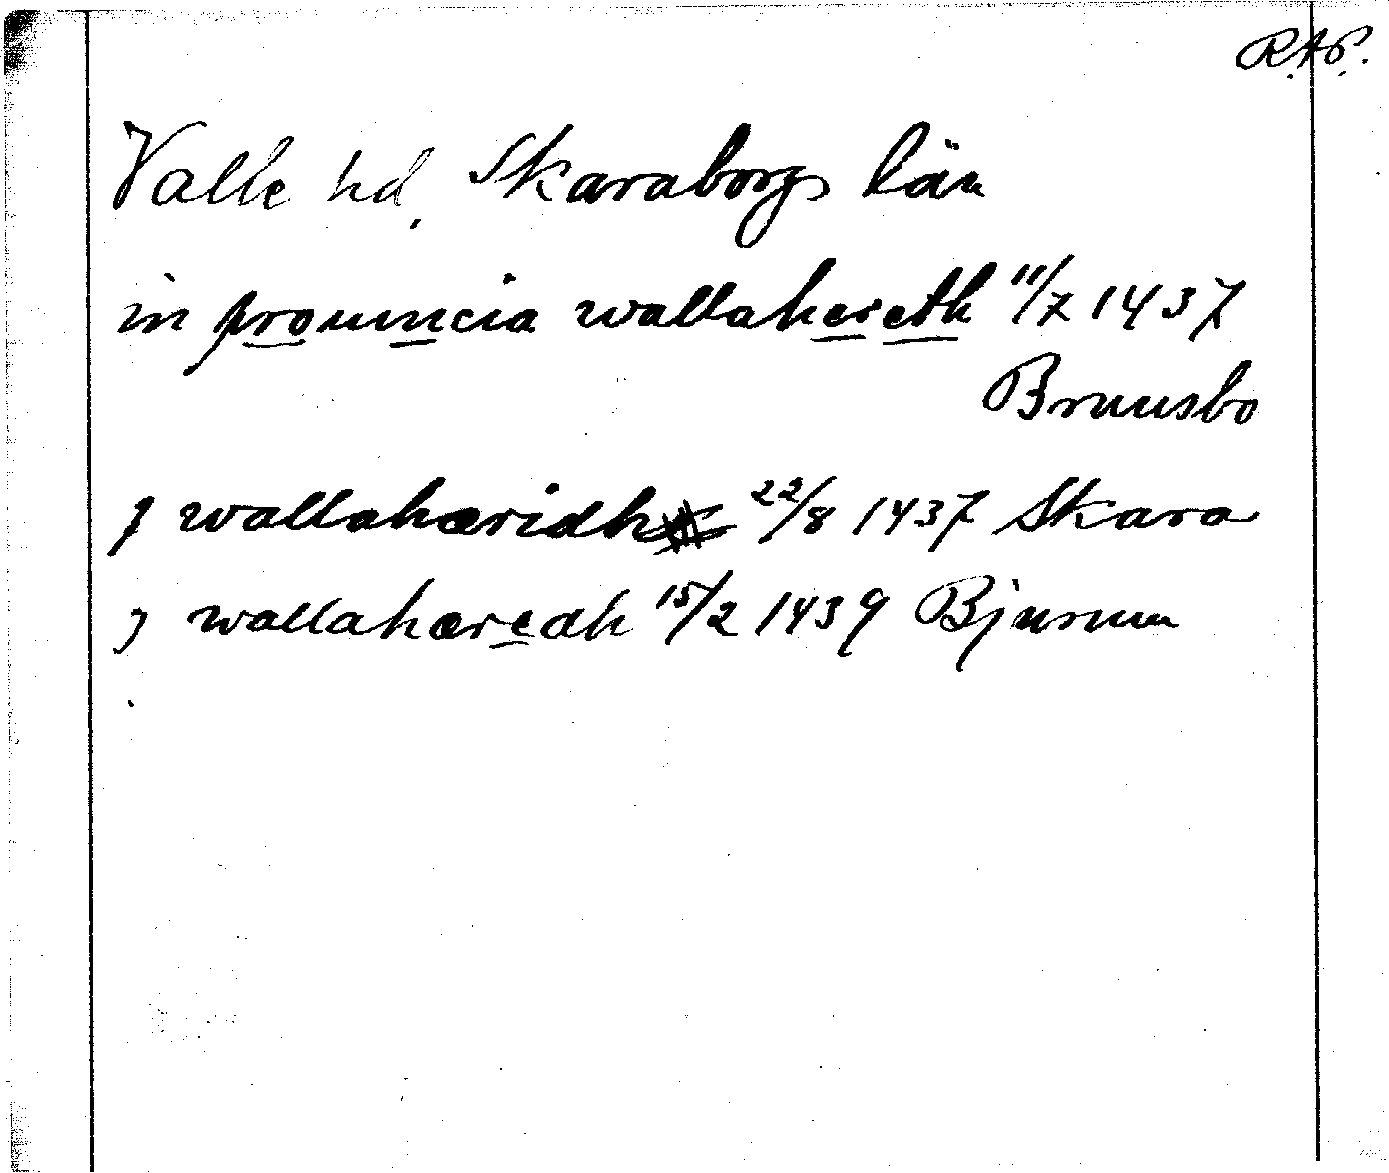 R.A.P.
Valle hd. Skaraborgs län
in prouincia wallahereth 11/7 1437
Brunsbo
j wallahæridh 22/8 1437 Skara
j wallahæredh 15/2 1439 Bjurum